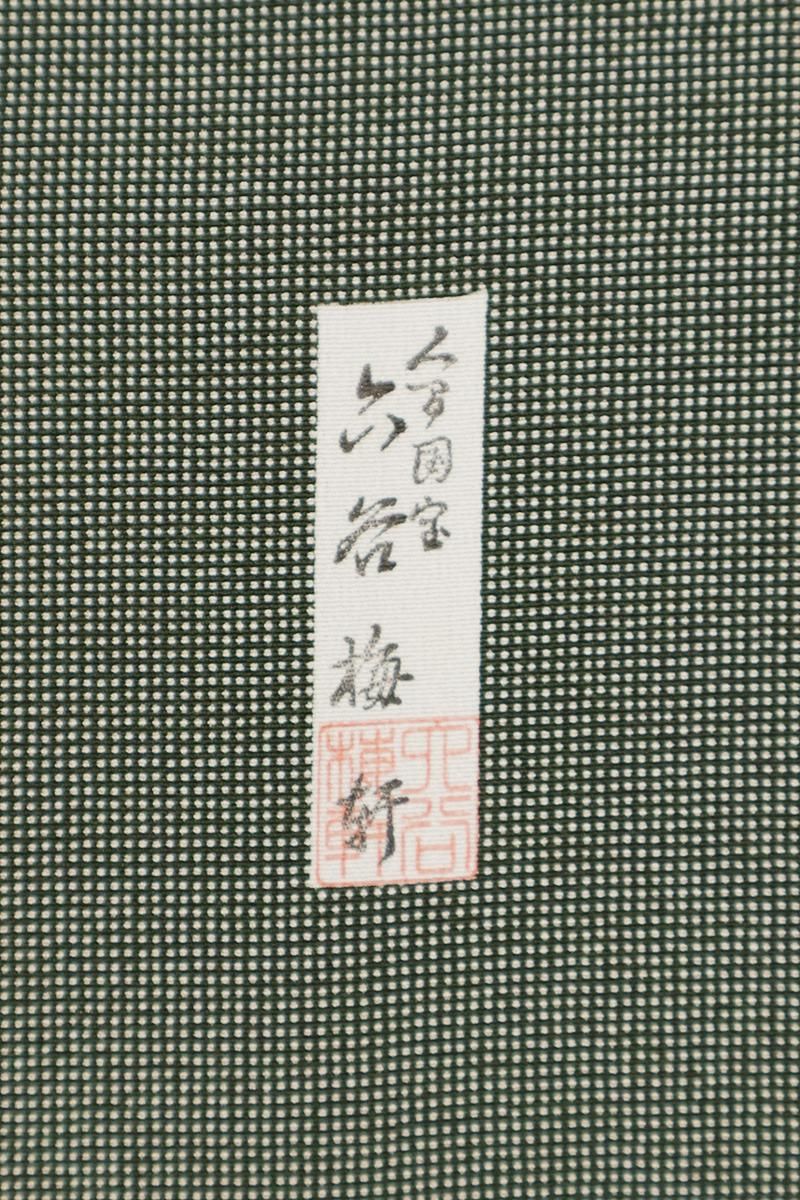 人間国宝
六谷梅軒
六谷
梅軒